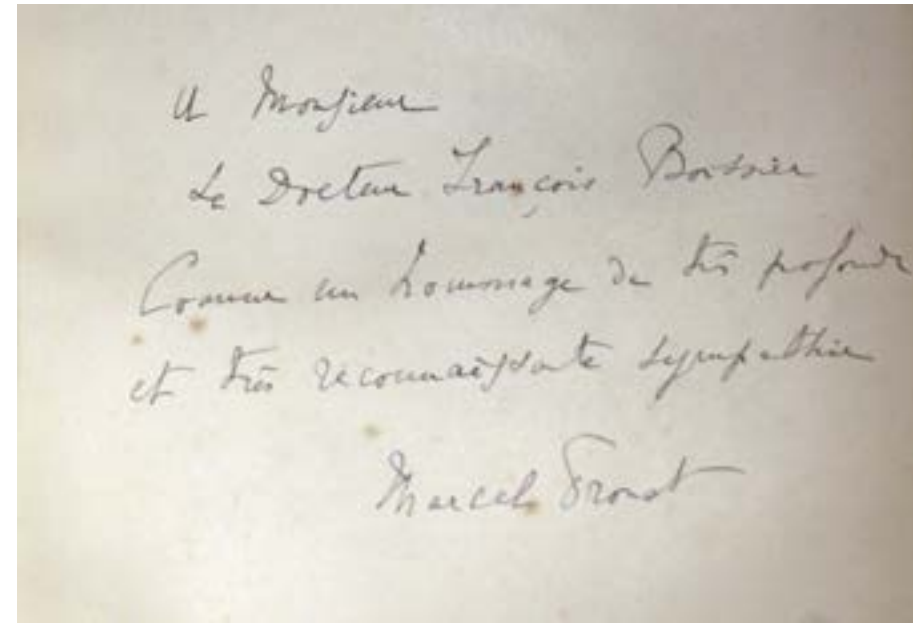 A Monsieur
Le Docteur François Boissier
Comme un hommage de très profonde
et très reconnaissante sympathie
Marcel Proust